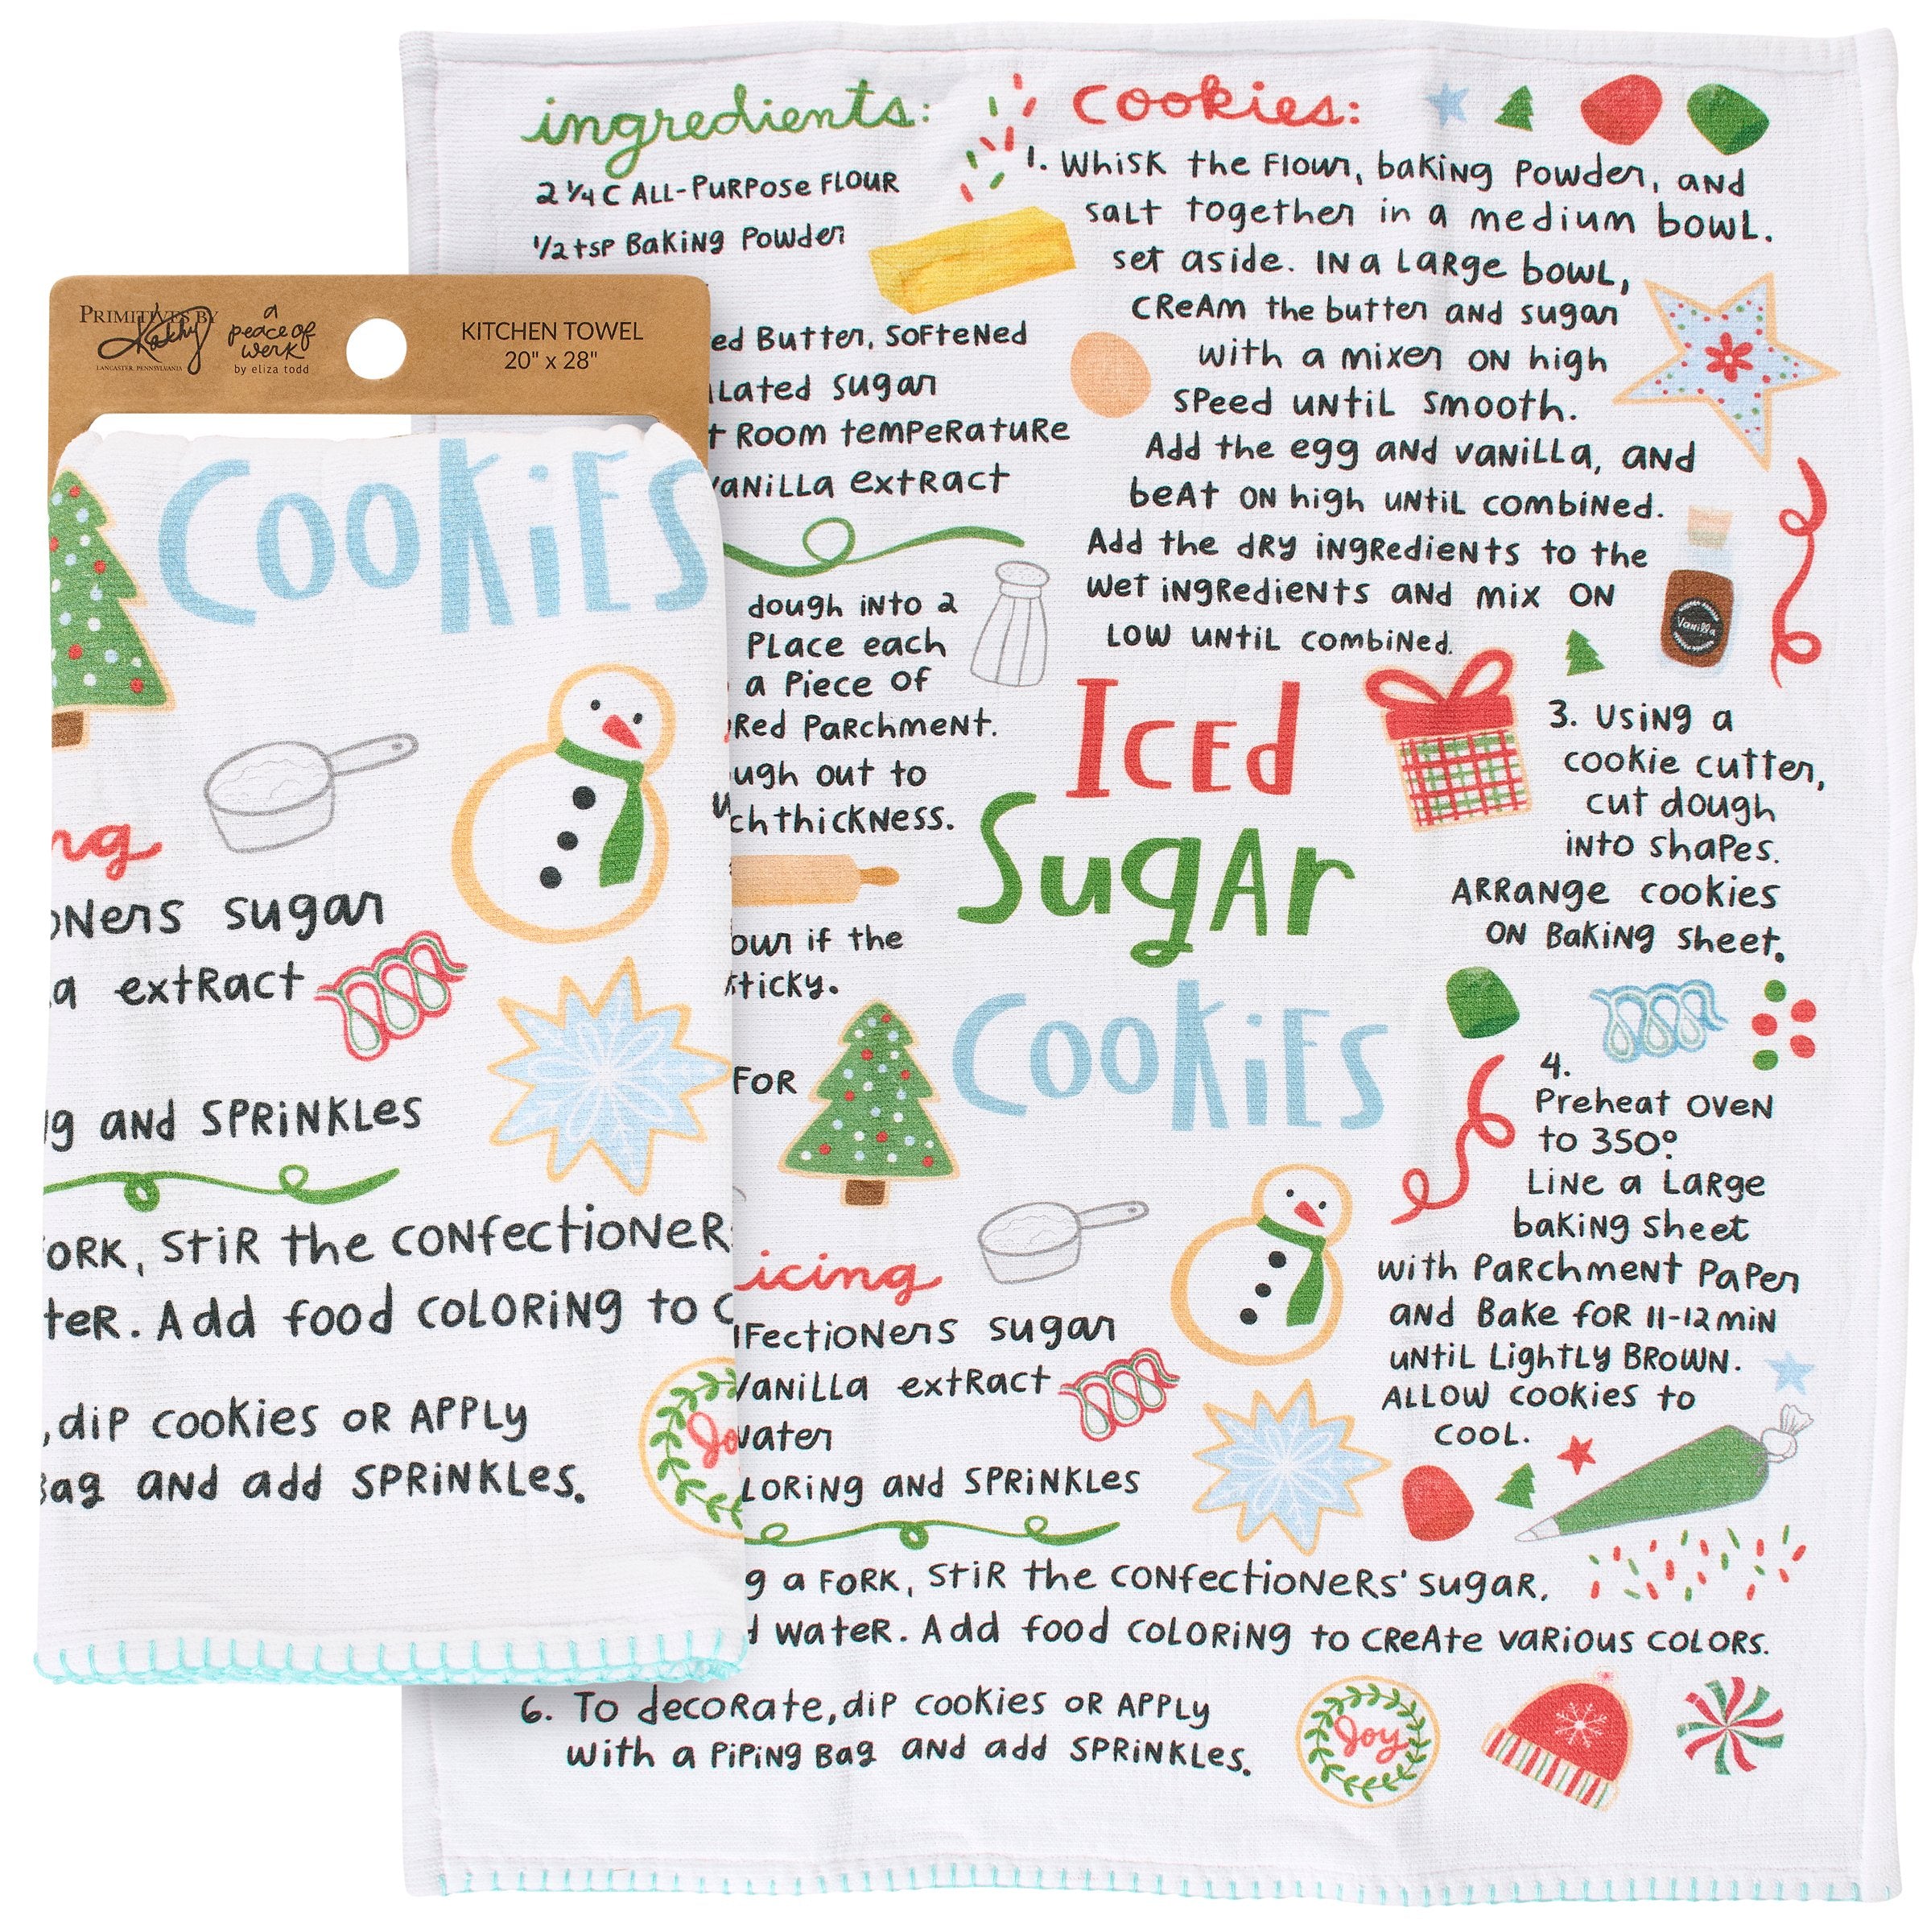 PRIMITIVES BY
Kathy
LANCASTER, PENNSYLVANIA
a
peace of
werk
by eliza todd
KITCHEN TOWEL
20" x 28"
COOKiES
sugar
extRact
and SPRiNKLes
ORK, StiR the CONfectioNeR
teR. Add food COLORiNg to C
, diP cookies OR APPLy
Bag and add SPRiNKLes.
ingredients:
2 1/4 C ALL-PURPOSE FLOUR
1/2 tsp Baking Powder
Butter, Softened
sugar
Room temperature
vanilla extract
dough into 2
Place each
a Piece of
Parchment.
out to
thickness.
if the
sticky.
FOR
icing
sugar
Vanilla extRact
water
and SPRiNKLes
a FORK, StiR the CONfectioNeRs' sugar,
wateR. Add food COLORiNg to CReAte vaRious COLORS.
6. To decoRate, diP cookies OR APPLy
with a PiPiNg Bag and add SPRiNKLes.
Joy
cookies:
1. Whisk the Flour, baking Powder, and
salt together in a medium bowl.
set aside. In a Large bowl,
Cream the butter and sugar
with a mixer on high
speed until smooth.
Add the egg and vanilla, and
beat on high until combined.
Add the dry ingredients to the
wet ingredients and mix on
low until combined.
Vanilla
Iced
Sugar
Cookies
3. Using a
cookie cutter,
cut dough
into shapes.
Arrange cookies
on Baking sheet.
4.
Preheat oven
to 350°.
Line a Large
baking sheet
with Parchment Paper
and Bake for 11-12 min
until Lightly Brown.
Allow cookies to
cool.